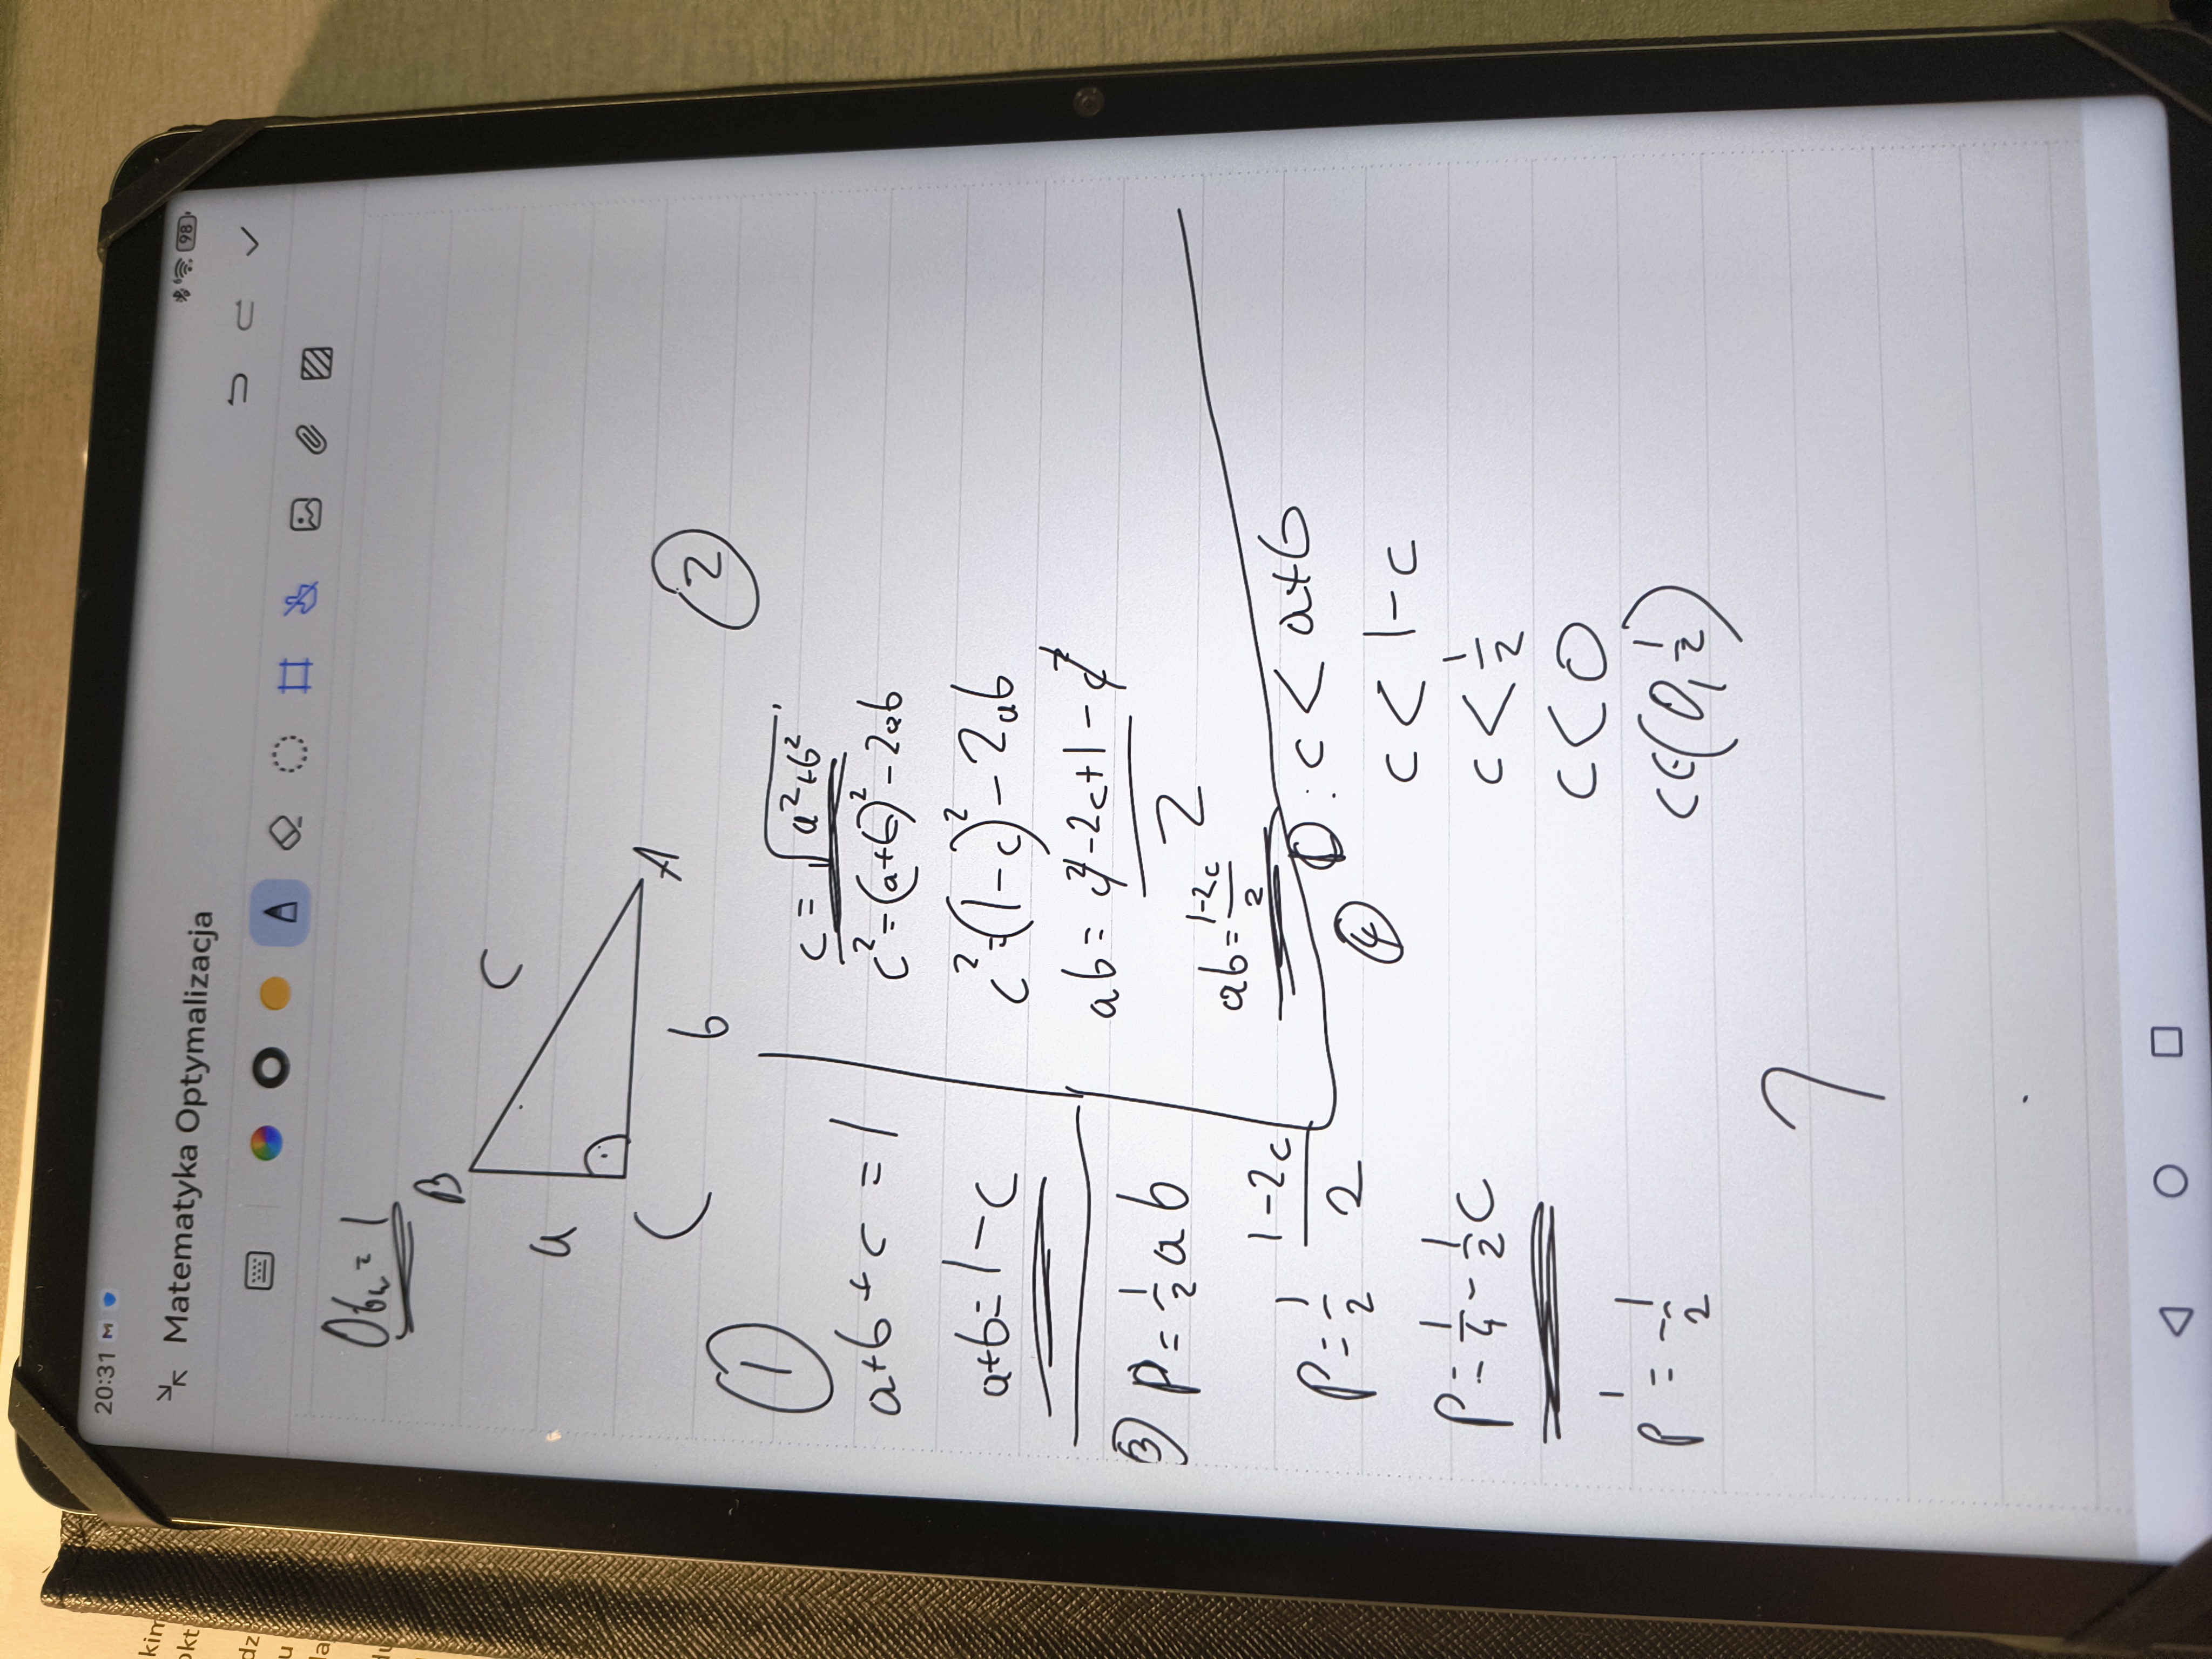 20:31 M
98
Matematyka Optymalizacja
Obw = 1
B
a
c
C
b
A
①
a+b+c=1
a+b=1-c
②
c=√a²+b²
c²=(a+b)²-2ab
c²=(1-c)²-2ab
ab=c²-2c+1-c²
2
ab=1-2c/2
③ P=1/2ab
P=1/2 1-2c/2
P=1/4-1/2c
P'=-1/2
④ D: c<a+b
c<1-c
c<1/2
c<0
c∈(0,1/2)
kim
okt
dz
u
la